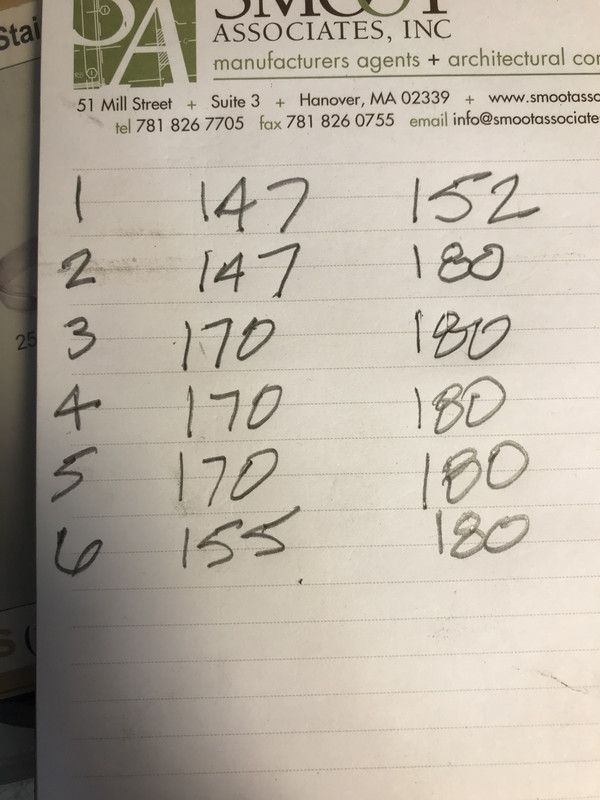 Stai
SA
SMOOT
ASSOCIATES, INC
manufacturers agents + architectural cor
51 Mill Street + Suite 3 + Hanover, MA 02339 + www.smootasso
tel 781 826 7705 fax 781 826 0755 email info@smootassociate
1 147 152
2 147 180
3 170 180
25
4 170 180
5 170 180
6 155 180
S (